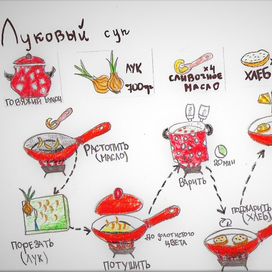 Луковый суп
говяжий бульон
лук
700гр.
x4
сливочное
масло
хлеб
растопить
(масло)
варить
20мин
порезать
(лук)
потушить
до золотистого
цвета
поджарить
(хлеб)